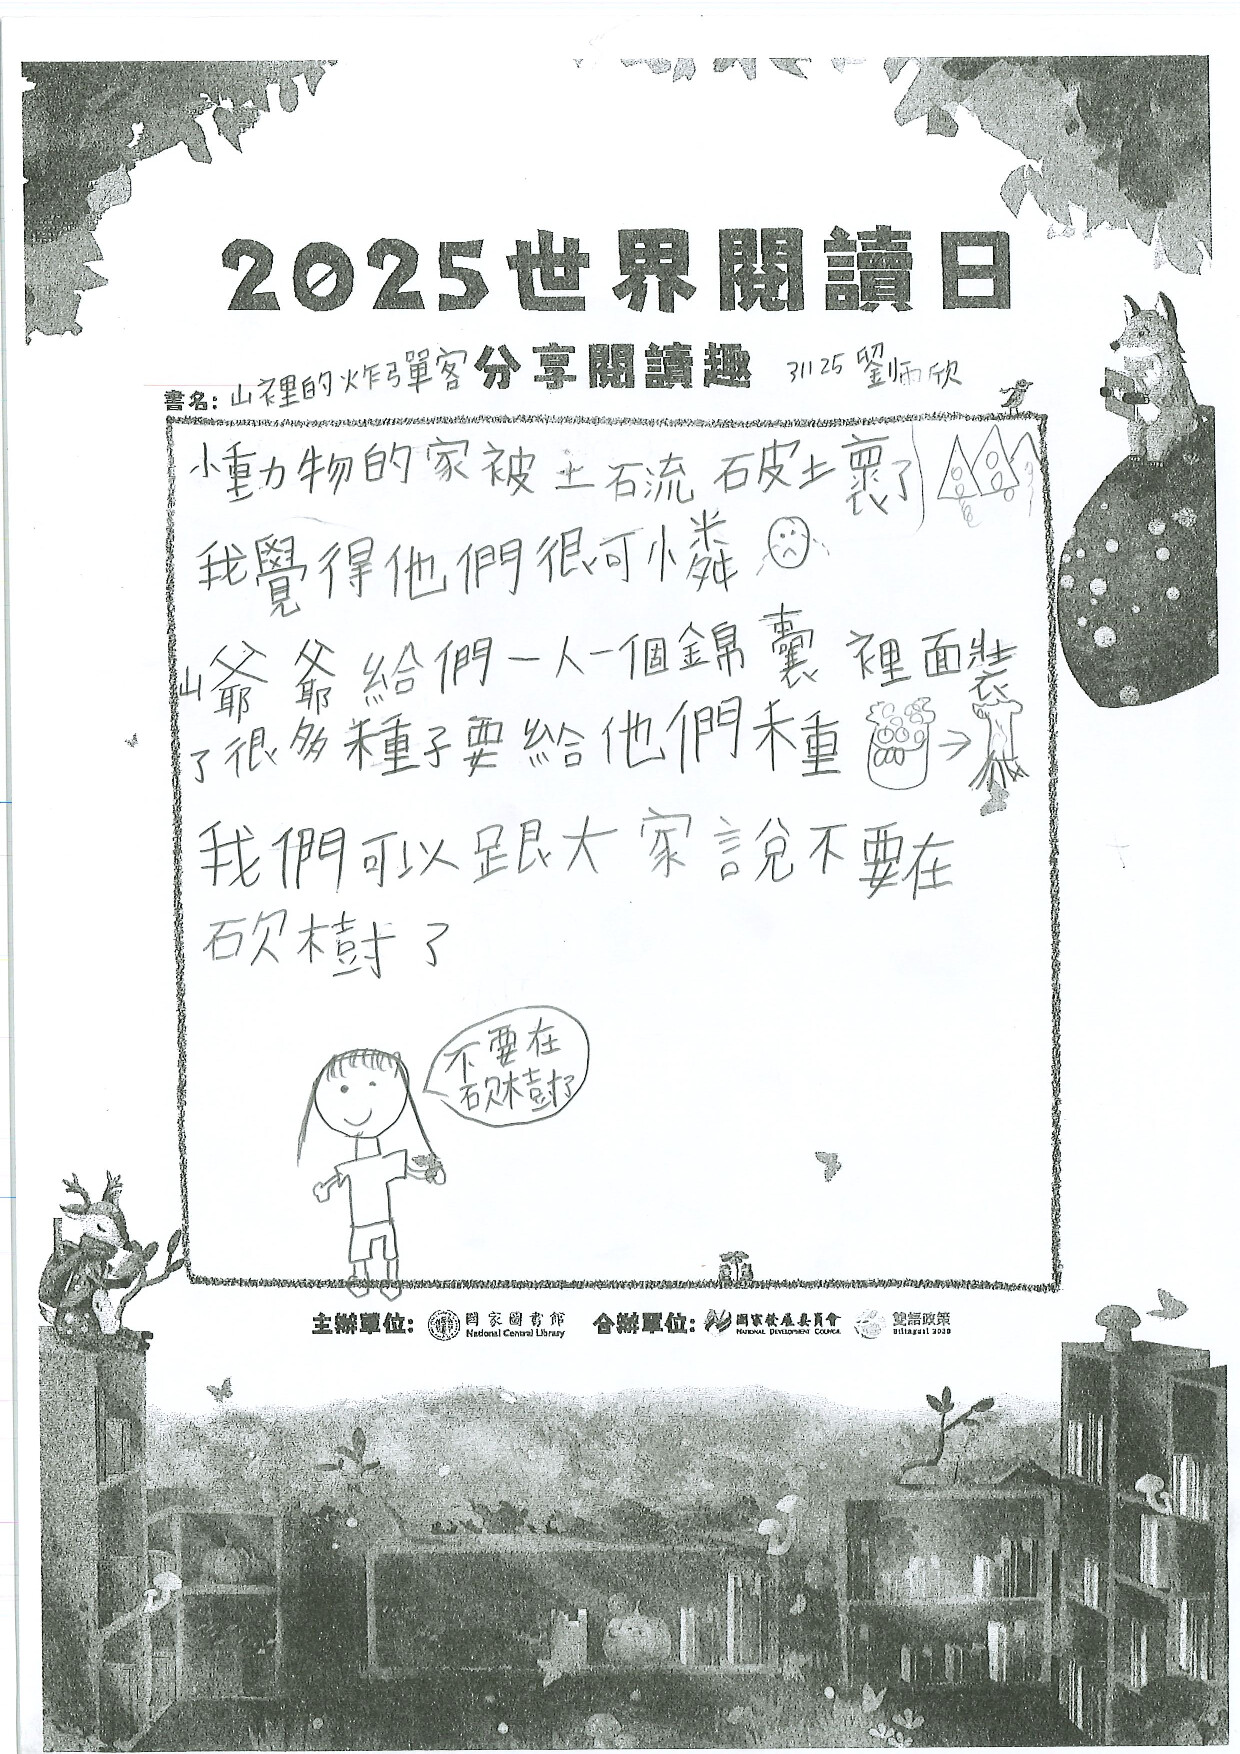 2025世界閱讀日
分享閱讀趣
書名: 山裡的炸彈客
31125 劉雨欣
小動物的家被土石流破土裹了
我覺得他們很可憐
山爺爺給們一人一個錦囊裡面裝
了很多種子要給他們種
我們可以跟大家說不要在
砍樹了
不要在
砍樹了
主辦單位: 國家圖書館 National Central Library 合辦單位: 國家發展委員會 NATIONAL DEVELOPMENT COUNCIL 雙語政策 Bilingual 2030